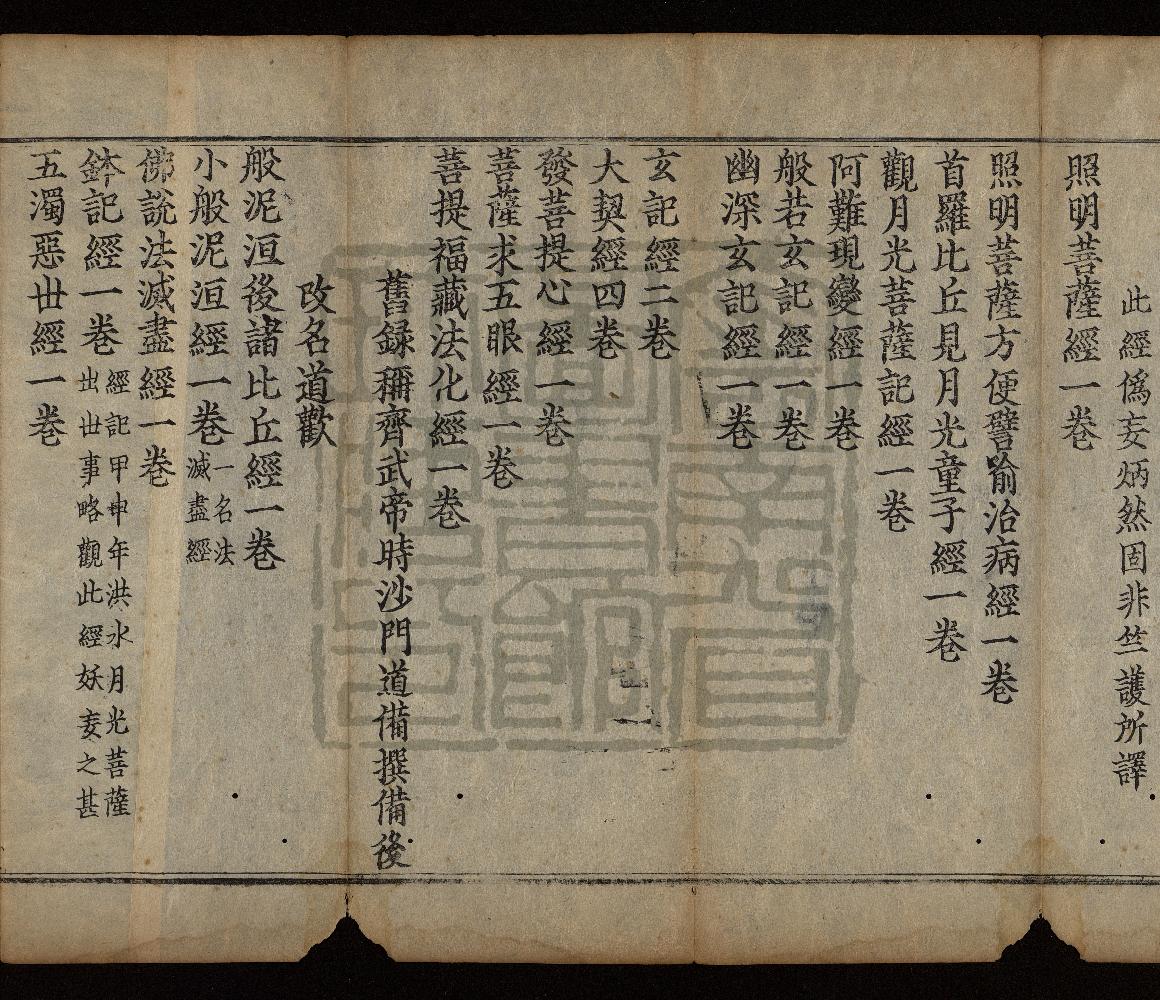 此經僞妄炳然固非竺護所譯
照明菩薩經一卷
照明菩薩方便譬喻治病經一卷
首羅比丘見月光童子經一卷
觀月光菩薩記經一卷
阿難現變經一卷
般若玄記經一卷
幽深玄記經一卷
玄記經二卷
大契經四卷
發菩提心經一卷
菩薩求五眼經一卷
菩提福藏法化經一卷
舊録稱齊武帝時沙門道備撰備後
改名道歡
般泥洹後諸比丘經一卷
小般泥洹經一卷一名法
滅盡經
佛說法滅盡經一卷
鉢記經一卷經記甲申年洪水月光菩薩
出世事略觀此經妖妄之甚
五濁惡世經一卷